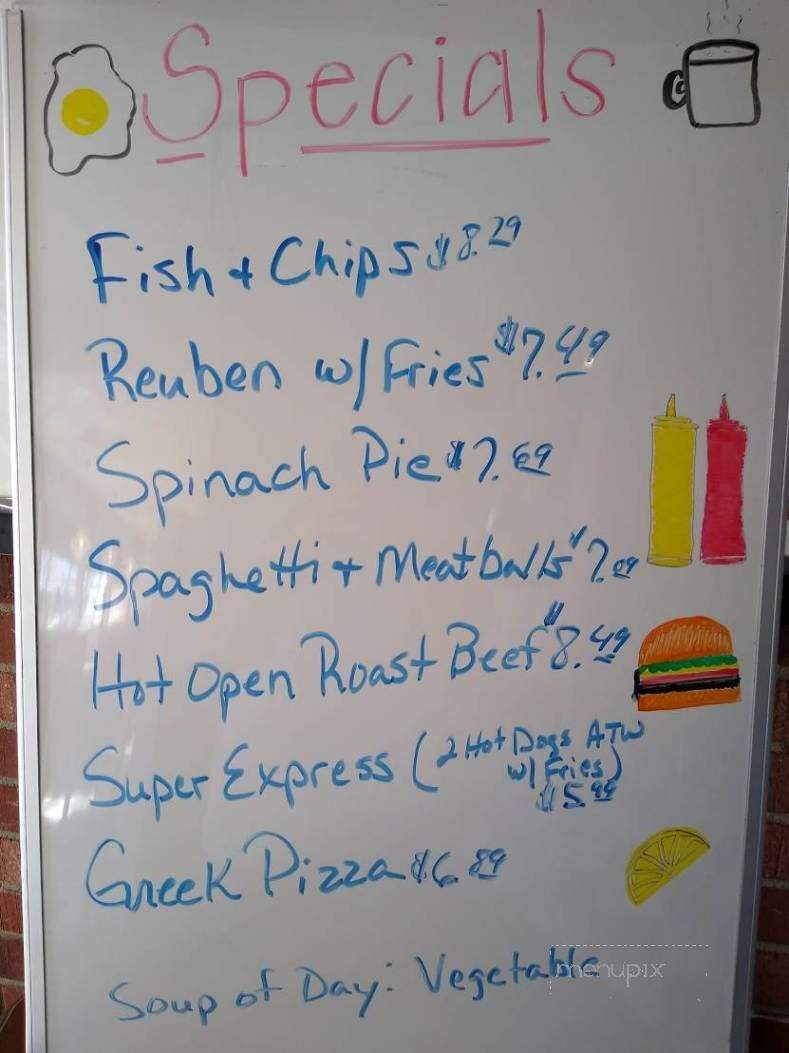 Specials
Fish + Chips $8.29
Reuben w/ Fries $7.49
Spinach Pie $7.69
Spaghetti + Meatballs $7.09
Hot Open Roast Beef $8.49
Super Express (2 Hot Dogs ATW
w/ Fries)
$5.99
Greek Pizza $6.89
Soup of Day: Vegetable
menupix